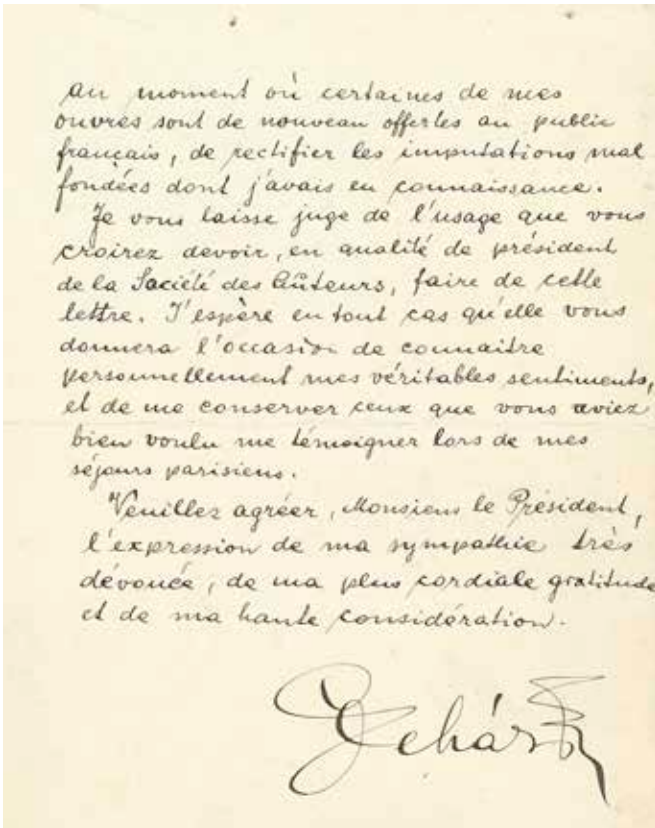 au moment où certaines de mes
ouvres sont de nouveau offertes au public
français, de rectifier les imputations mal
fondées dont j'avais eu connaissance.
Je vous laisse juge de l'usage que vous
croirez devoir, en qualité de président
de la Société des Auteurs, faire de cette
lettre. J'espère en tout cas qu'elle vous
donnera l'occasion de connaitre
personnellement mes véritables sentiments,
et de me conserver ceux que vous aviez
bien voulu me témoigner lors de mes
séjours parisiens.
Veuillez agréer, Monsieur le Président,
l'expression de ma sympathie très
dévouée, de ma plus cordiale gratitude
et de ma haute considération.
Lehár